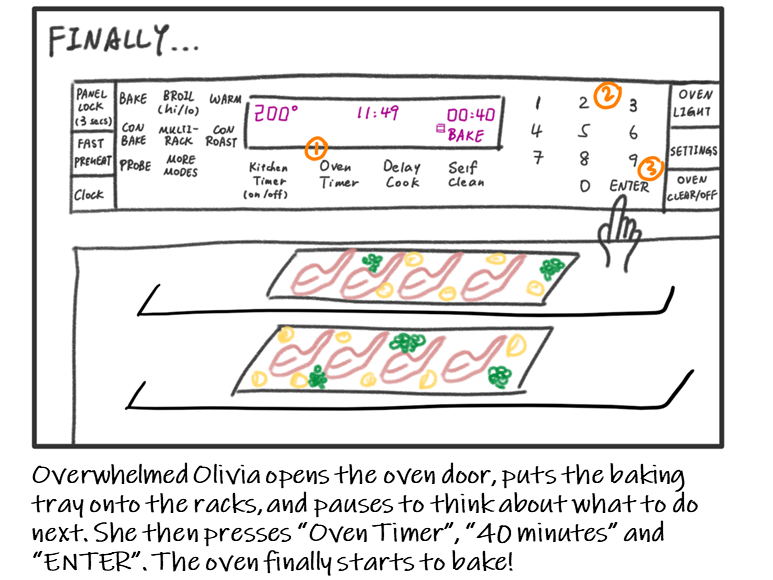 FINALLY...
PANEL
LOCK
(3 secs)
FAST
PREHEAT
Clock
BAKE
BROIL
(hi/lo)
WARM
CON
BAKE
MULTI-
RACK
CON
ROAST
PROBE
MORE
MODES
200°
11:49
00:40
BAKE
1
Kitchen
Timer
(on/off)
Oven
Timer
Delay
Cook
Self
Clean
1 2 3
2
4 5 6
7 8 9
3
0 ENTER
OVEN
LIGHT
SETTINGS
OVEN
CLEAR/OFF
Overwhelmed Olivia opens the oven door, puts the baking
tray onto the racks, and pauses to think about what to do
next. She then presses “Oven Timer”, “40 minutes” and
“ENTER”. The oven finally starts to bake!